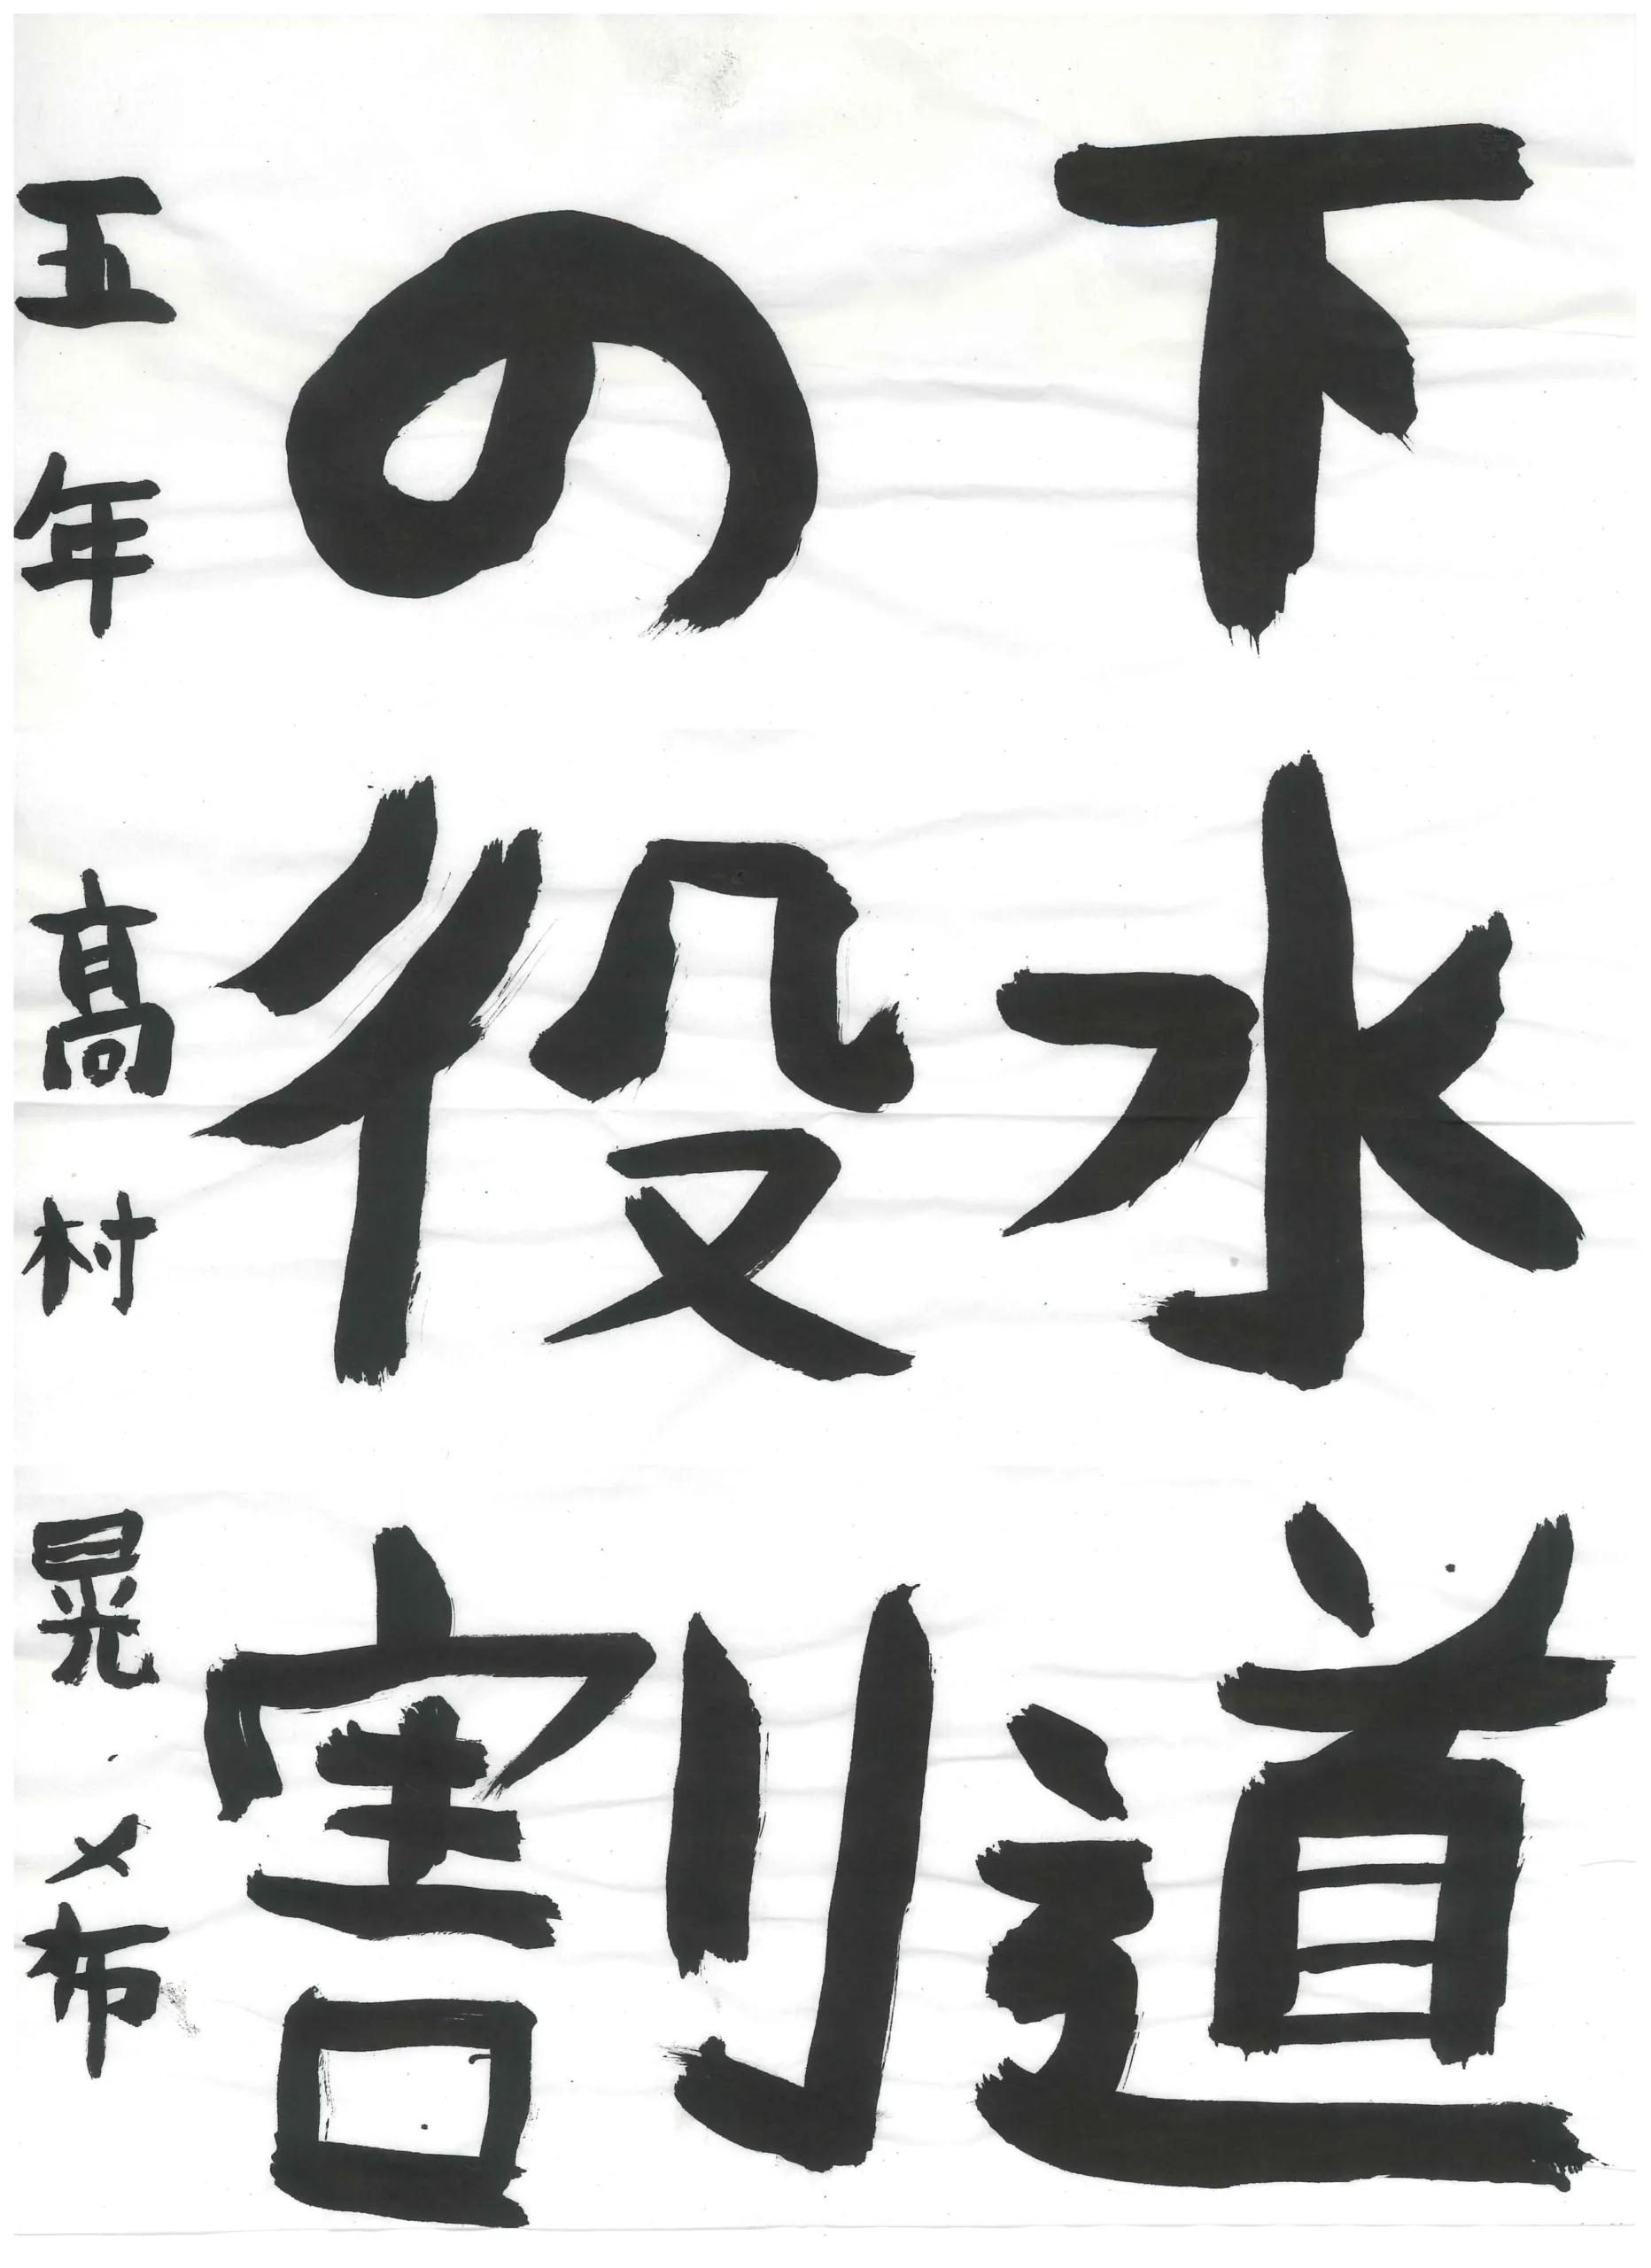 下水道
の役割
五年 髙村 晃希